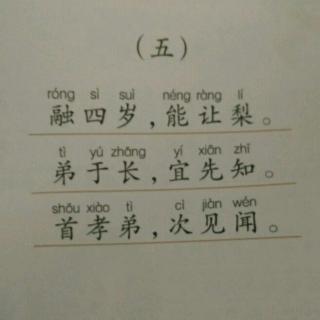 （五）
róng sì suì néng ràng lí
融四岁，能让梨。
tì yú zhǎng yí xiān zhī
弟于长，宜先知。
shǒu xiào tì cì jiàn wén
首孝弟，次见闻。